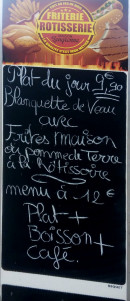 FRITERIE
ROTISSERIE
Plat du jour 9€,90
Blanquette de Veau
avec
Frites maison
ou Pomme de Terre
à la Rôtissoire
menu à 12 €
Plat +
Boisson +
Café.